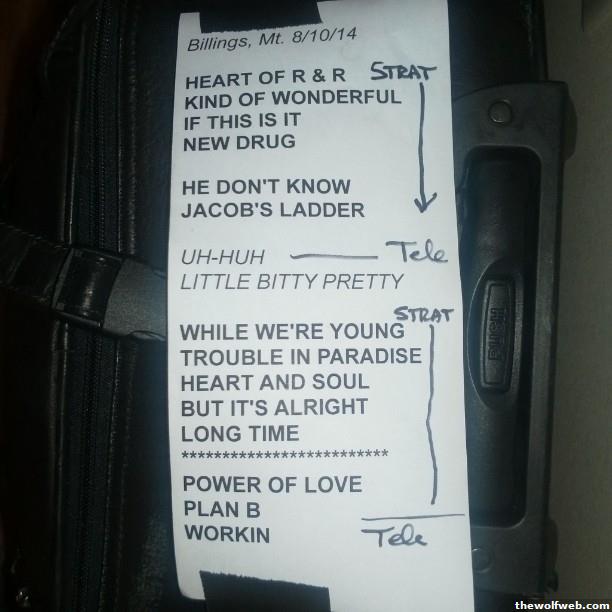 Billings, Mt. 8/10/14
HEART OF R & R STRAT
KIND OF WONDERFUL
IF THIS IS IT
NEW DRUG
HE DON'T KNOW
JACOB'S LADDER
UH-HUH Tele
LITTLE BITTY PRETTY
STRAT
WHILE WE'RE YOUNG
TROUBLE IN PARADISE
HEART AND SOUL
BUT IT'S ALRIGHT
LONG TIME
*************************
POWER OF LOVE
PLAN B
WORKIN Tele
thewolfweb.com